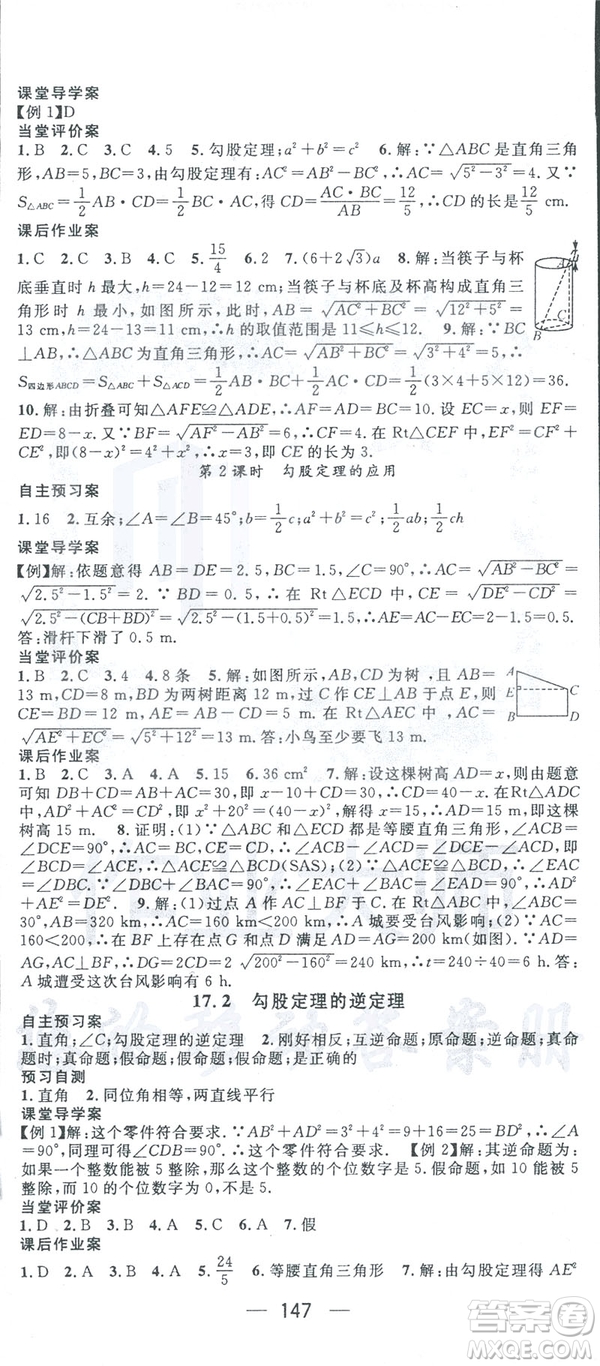 课堂导学案
【例 1】D
当堂评价案
1. B 2. C 3. C 4. 5 5. 勾股定理;a²+b²=c² 6. 解:∵△ABC是直角三角
形,AB=5,BC=3,由勾股定理有:AC²=AB²-BC²,∴AC=√(5²-3²)=4. 又∵
S△ABC=1/2 AB·CD=1/2 AC·BC,得 CD=AC·BC/AB=12/5,∴CD 的长是 12/5 cm.
课后作业案
1. C 2. C 3. B 4. C 5. 15/4 6. 2 7. (6+2√3)a 8. 解:当筷子与杯
底垂直时 h 最大,h=24-12=12 cm. 当筷子与杯底及杯高构成直角三
角形时 h 最小,如图所示,此时,AB=√(AC²+BC²)=√(12²+5²)=
13 cm,∴h=24-13=11 cm. ∴h 的取值范围是 11≤h≤12. 9. 解:∵AB
⊥AD,∴△ABD 为直角三角形,∴BD=√(AB²+AD²)=√(3²+4²)=5.
S四边形ABCD=S△ABD+S△ACD=1/2×(3×4+5×12)=36.
10. 解:由折叠可知△AFE≌△ADE,∴AF=AD=BC=10. 设 EC=x,则 EF=
ED=8-x. 又∵BF=√(AF²-AB²)=6,∴CF=10-6=4. 在 Rt△CEF 中,EF²=EC²+
CF²,即(8-x)²=x²+4²,解得 x=3. ∴EC 的长为 3.
第 2 课时 勾股定理的应用
自主预习案
1. 16 2. 互余;∠A=∠B=45°;b=1/2 c;1/2 ab;1/2 ch
课堂导学案
【例】解:依题意得 AB=DE=2.5,BC=1.5,∠C=90°,∴AC=√(AB²-BC²)=
√(2.5²-1.5²)=2. ∵BD=0.5,∴在 Rt△ECD 中,CE=√(DE²-CD²)=
√(2.5²-(CB+BD)²)=√(2.5²-(1.5+0.5)²)=1.5,∴AE=AC-CE=2-1.5=0.5.
答:滑杆下滑了 0.5 m.
当堂评价案
1. B 2. C 3. 4 4. 8 条 5. 解:如图所示,AB,CD 为树,且 AB=
13 m,CD=8 m,BD 为两树距离 12 m,过 C 作 CE⊥AB 于点 E,则
CE=BD=12 m,AE=AB-CD=5 m,在 Rt△AEC 中,AC=
√(AE²+CE²)=√(5²+12²)=13 m. 答:小鸟至少要飞 13 m.
课后作业案
1. B 2. C 3. A 4. A 5. 15 6. 36 cm² 7. 解:设这棵树高 AD=x,根据题意
可知 DB+CD=AB+AC,即 x-10+CD=10+20,∴CD=40-x,在 Rt△ADC
中,AD²+AC²=CD²,即 x²+20²=(40-x)²,解得 x=15,∴AD=15,即这棵
树高 15 m. 8. 证明:(1)∵△ABC 和△ECD 都是等腰直角三角形,∠ACB=
∠DCE=90°,∴AC=BC,CE=DC,∴∠ACE=∠DCE-∠DCA,∠BCD=∠ACB-
∠DCA,∴∠ACE=∠BCD,∴△ACE≌△BCD(SAS);(2)∵△ACE≌△BCD,∴∠EAC
=∠B=45°,AE=BD,∴∠EAD=∠EAC+∠CAD=45°+45°=90°,在 Rt△EAD 中,ED²
=AD²+AE². 9. 解:(1)过点 A 作 AD⊥BF 于点 D,∵∠ABD=30°,AB=320 km,∴AD=1/2 AB=160<200,∴A 城要受台风影响;(2)∵
160<200,∴在 BF 上存在点 G 和点 C 满足 AD=AG=200 km,AD⊥
AC,∴DG=CD,∴CG=2CD=2√(200²-160²)=240,∴t=240÷40=6 h. 答:
A 城遭受这次台风影响有 6 h.
17.2 勾股定理的逆定理
自主预习案
1. 直角;∠C;勾股定理的逆定理 2. 刚好相反;互逆命题;原命题;逆命题;真命
题;真命题;假命题;假命题;假命题;是正确的
预习自测
1. 直角 2. 同位角相等,两直线平行
课堂导学案
【例 1】解:这个零件符合要求. ∵AB²+AD²=3²+4²=9+16=25=BD²,∴∠A
=90°,同理可得∠C=90°,∴这个零件符合要求. 【例 2】解:其逆命题为:
如果一个整数能被 5 整除,那么这个整数的个位数字是 5. 假命题,如 10 能被 5
整除,而 10 的个位数字不是 5.
当堂评价案
1. D 2. D 3. C 4. A 5. C 6. A 7. 假
课后作业案
1. D 2. D 3. B 4. A 5. 24/5 6. 等腰直角三角形 7. 解:由勾股定理得 AE²
— 147 —